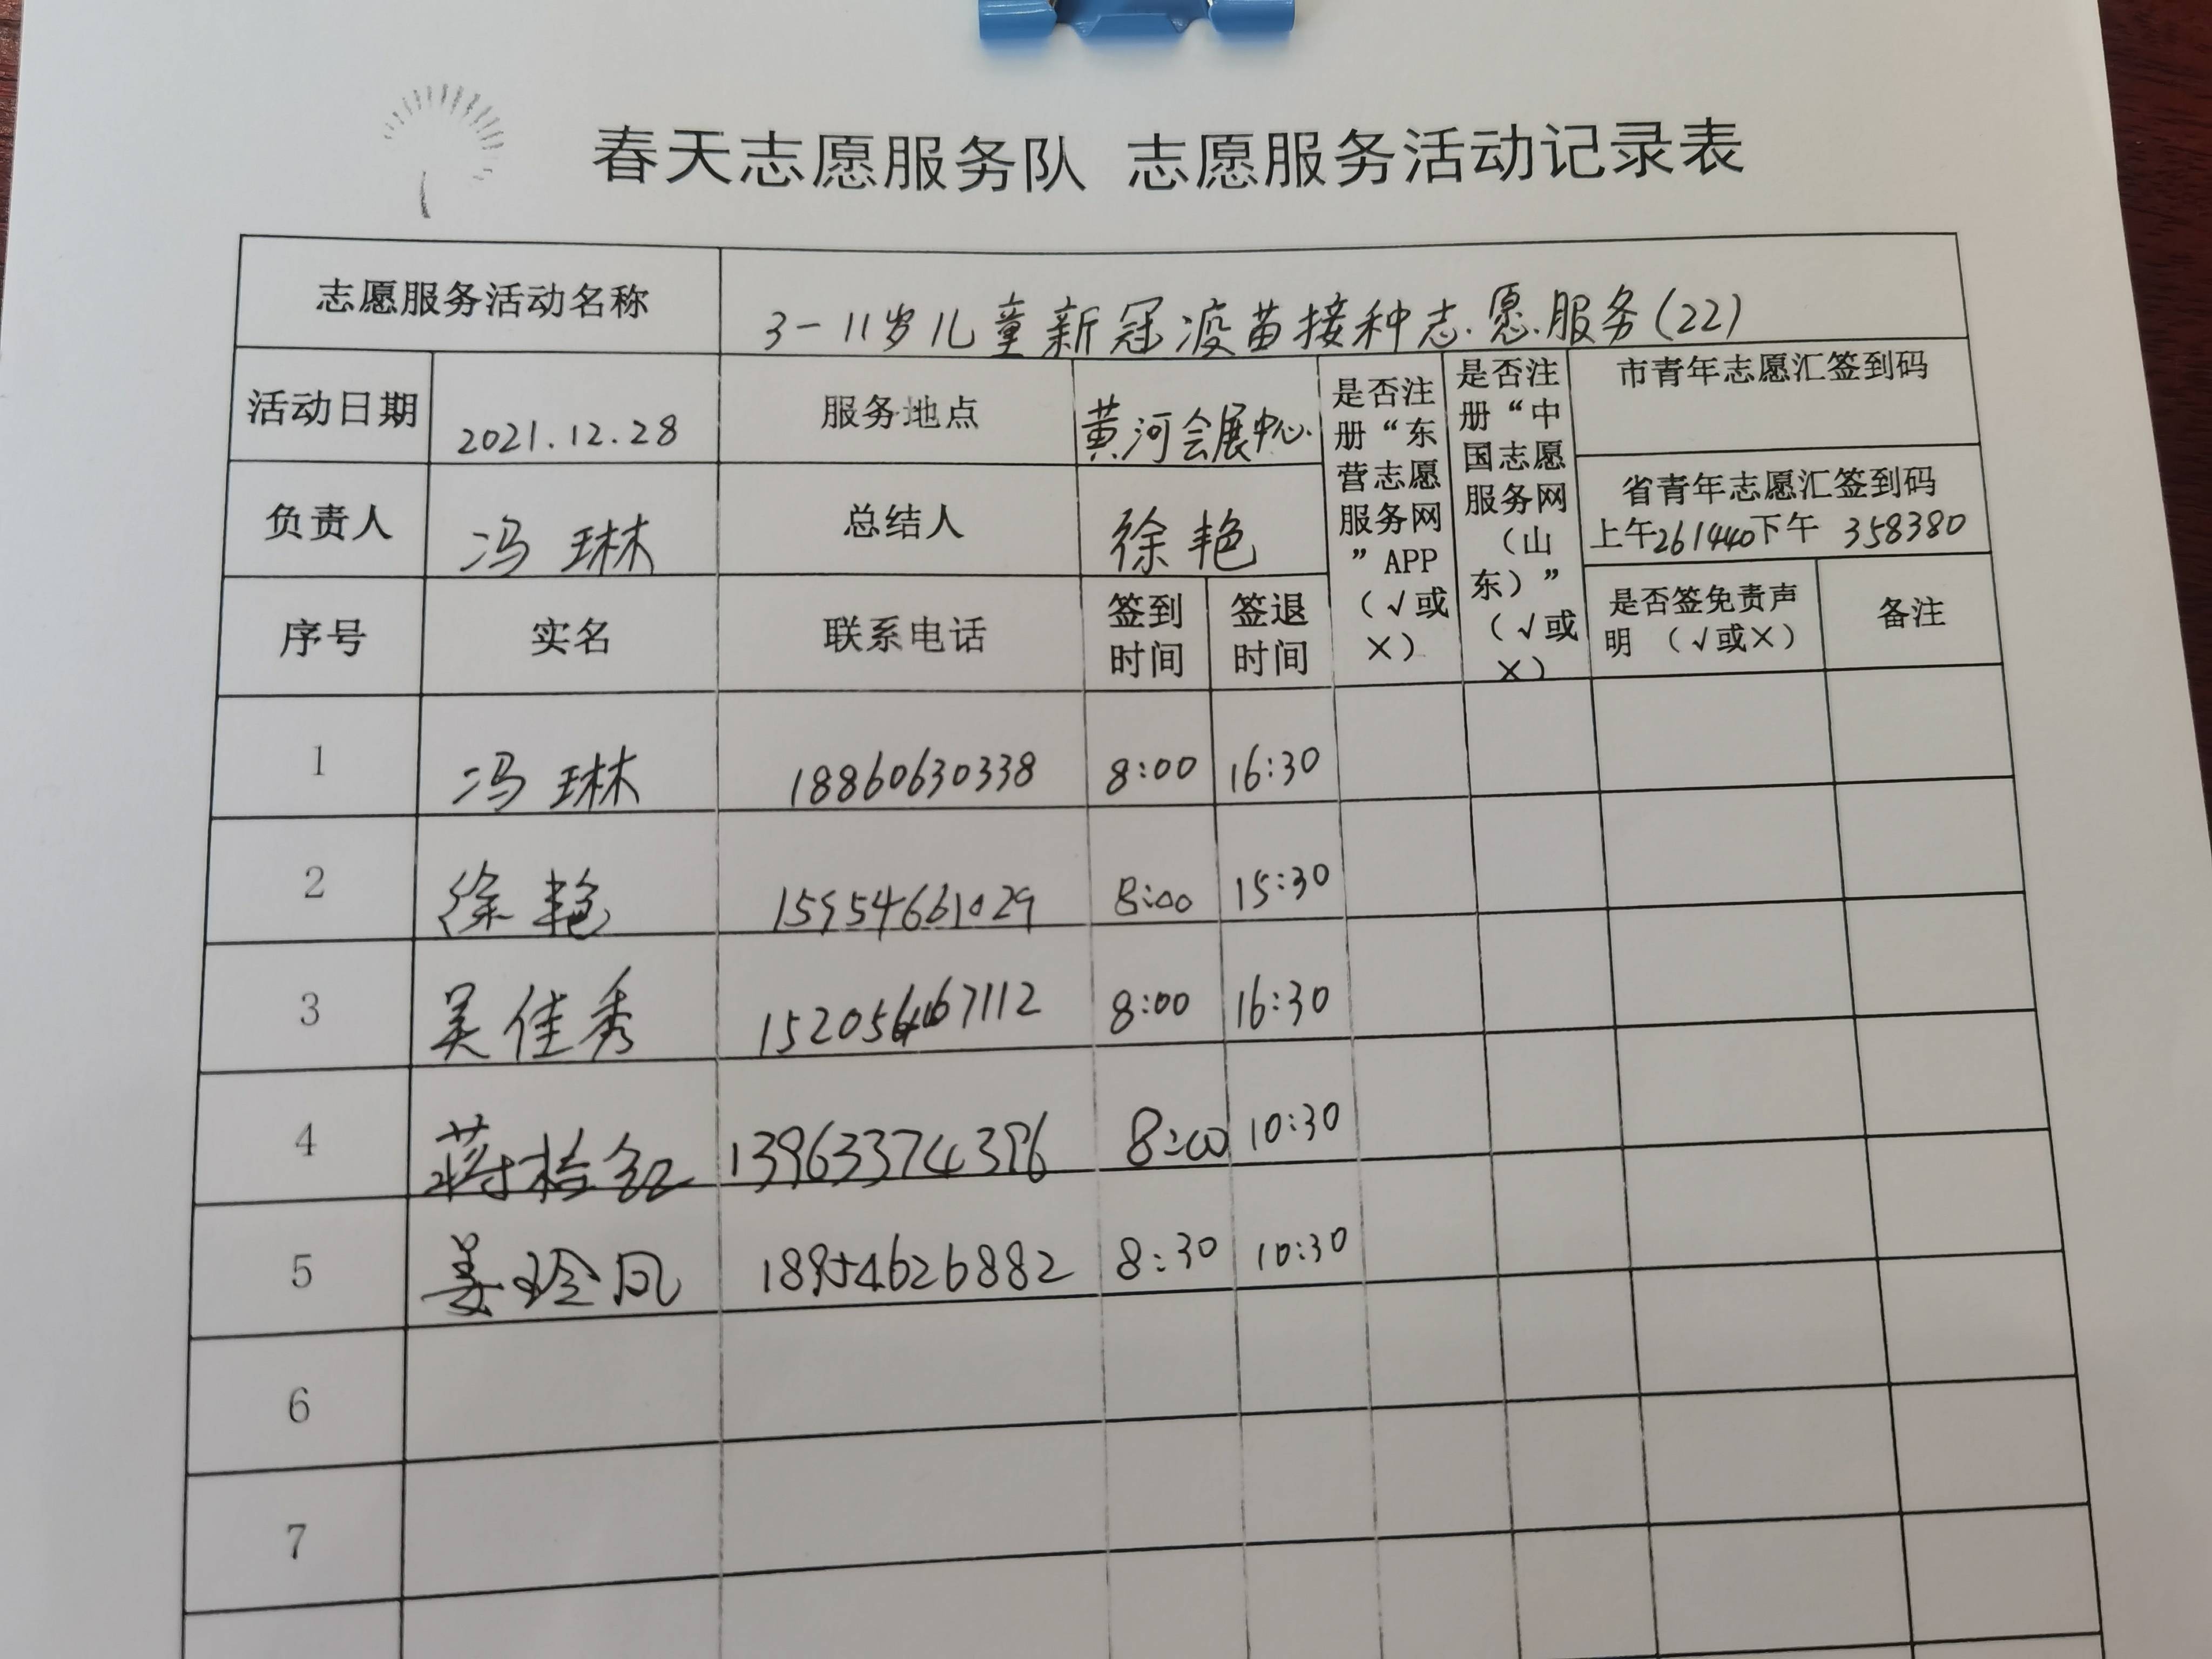 春天志愿服务队 志愿服务活动记录表
志愿服务活动名称 3-11岁儿童新冠疫苗接种志愿服务(22)
活动日期 2021.12.28 服务地点 黄河会展中心
是否注册“东营志愿服务网”APP（√或×）
是否注册“中国志愿服务网（山东）”（√或×）
市青年志愿汇签到码
负责人 冯琳 总结人 徐艳
省青年志愿汇签到码
上午261440下午 358380
序号 实名 联系电话 签到时间 签退时间 是否签免责声明 （√或×） 备注
1 冯琳 18860630338 8:00 16:30
2 徐艳 15954661029 8:00 15:30
3 吴佳秀 15205467112 8:00 16:30
4 蒋 13963374396 8:00 10:30
5 姜玲凤 18954626882 8:30 10:30
6
7